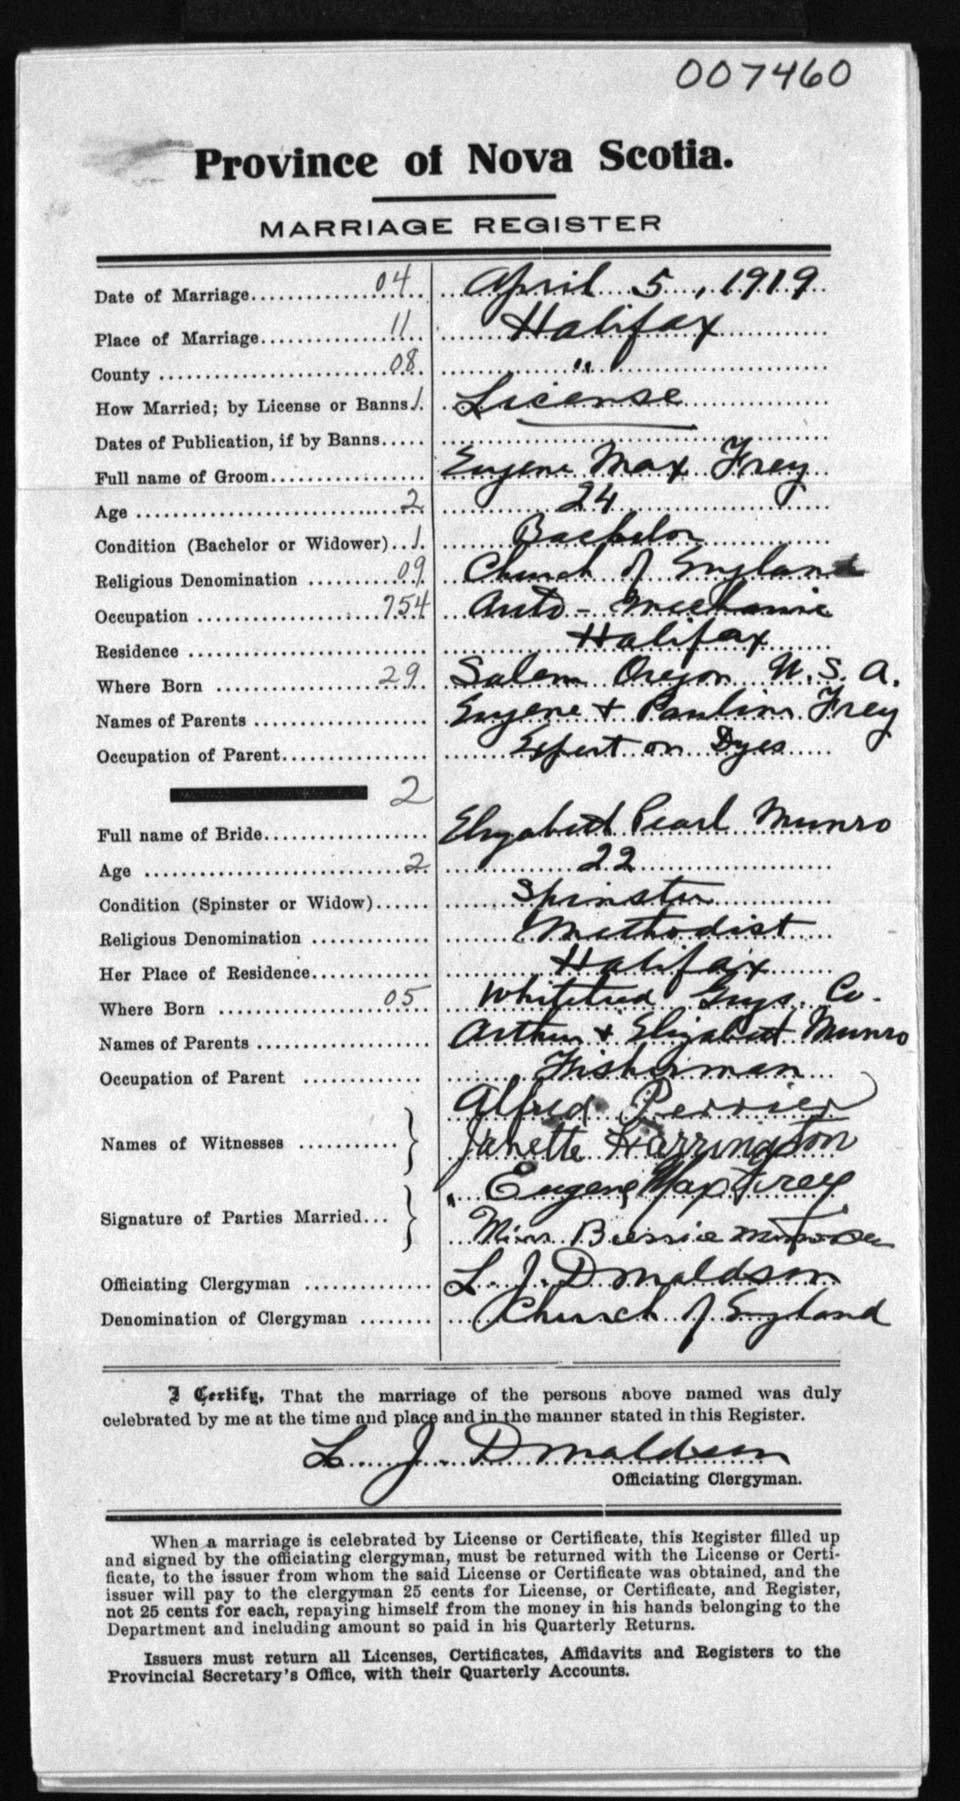 007460
Province of Nova Scotia.
MARRIAGE REGISTER
Date of Marriage 04 April 5, 1919
Place of Marriage 11 Halifax
County 08 "
How Married; by License or Banns 1 License
Dates of Publication, if by Banns
Full name of Groom Eugene Max Frey
Age 2 24
Condition (Bachelor or Widower) 1 Bachelor
Religious Denomination 09 Church of England
Occupation 754 Auto-Mechanic
Residence Halifax
Where Born 29 Salem Oregon U.S.A.
Names of Parents Eugene + Pauline Frey
Occupation of Parent Expert on Dyes
2
Full name of Bride Elizabeth Pearl Munro
Age 2 22
Condition (Spinster or Widow) Spinster
Religious Denomination Methodist
Her Place of Residence Halifax
Where Born 05 Whitehead Guys. Co.
Names of Parents Arthur + Elizabeth Munro
Occupation of Parent Fisherman
Alfred Perrier
Names of Witnesses Janette Harrington
Eugene Max Frey
Signature of Parties Married Miss Bessie
Officiating Clergyman L. J. Donaldson
Denomination of Clergyman Church of England
I Certify, That the marriage of the persons above named was duly
celebrated by me at the time and place and in the manner stated in this Register.
L. J. Donaldson
Officiating Clergyman.
When a marriage is celebrated by License or Certificate, this Register filled up
and signed by the officiating clergyman, must be returned with the License or Certi-
ficate, to the issuer from whom the said License or Certificate was obtained, and the
issuer will pay to the clergyman 25 cents for License, or Certificate, and Register,
not 25 cents for each, repaying himself from the money in his hands belonging to the
Department and including amount so paid in his Quarterly Returns.
Issuers must return all Licenses, Certificates, Affidavits and Registers to the
Provincial Secretary's Office, with their Quarterly Accounts.